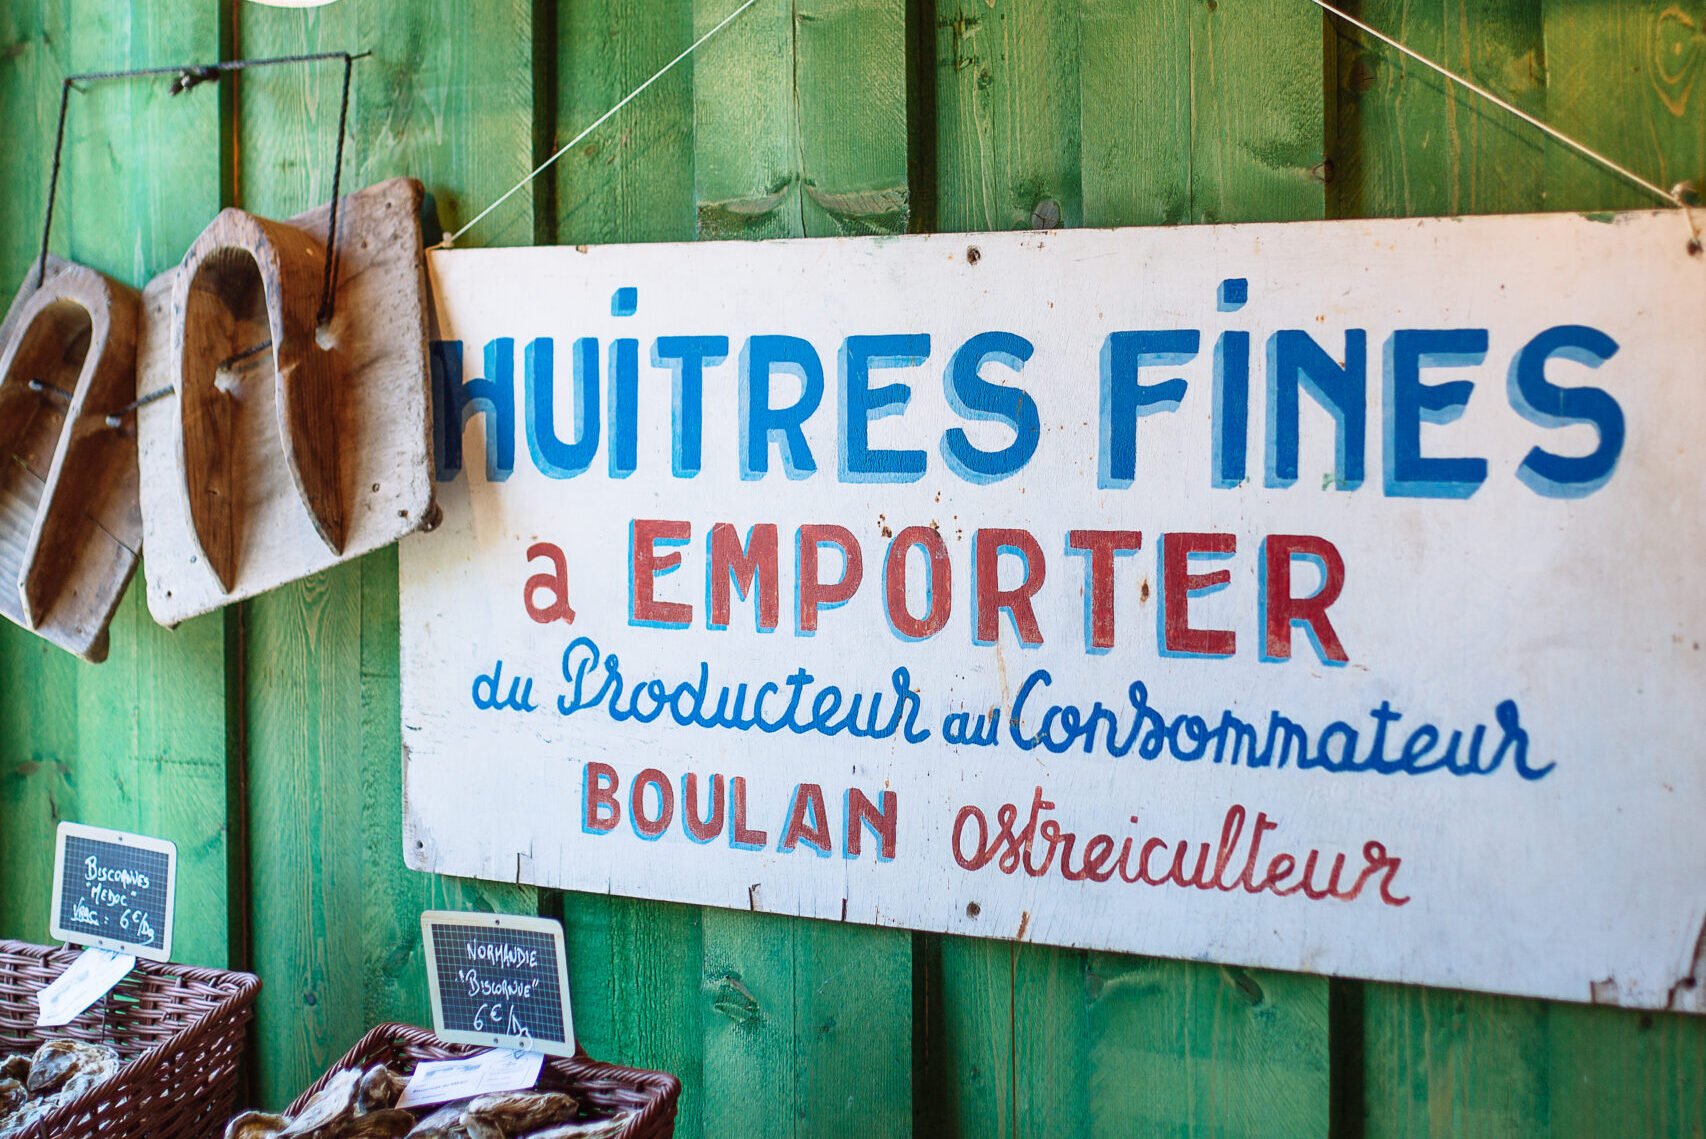 HUiTRES FiNES
a EMPORTER
du Producteur au Consommateur
BOULAN ostreiculteur
BISCORNUES
"MEDOC"
VRAC : 6€/Dz
NORMANDIE
"BISCORNUE"
6€/Dz